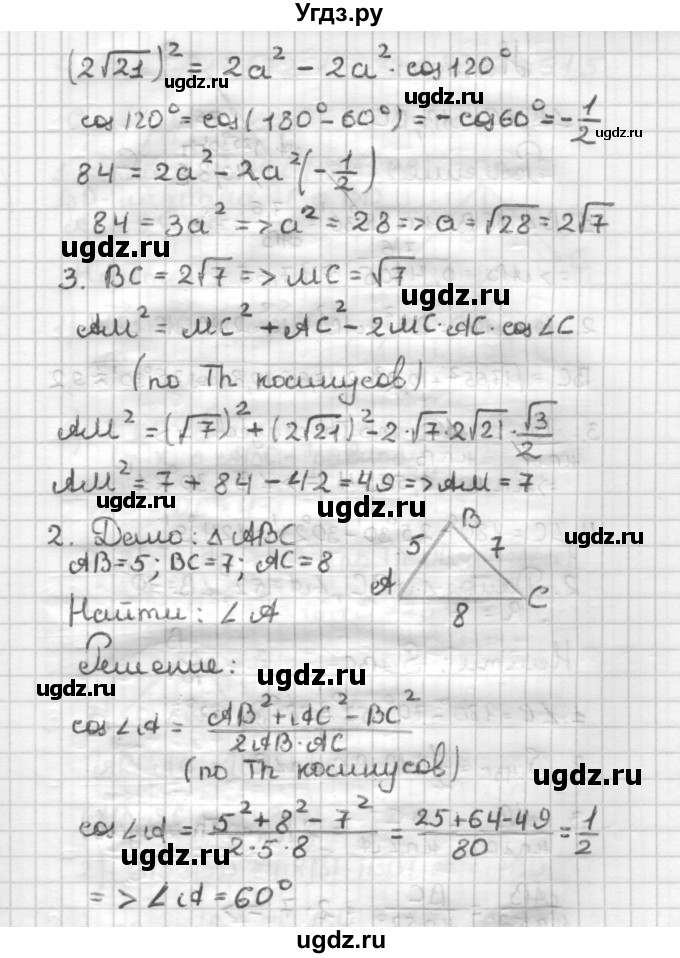 Угдз.ру
(2√21)² = 2a² - 2a² · cos120°
ugdz.ru
cos120° = cos(180° - 60°) = -cos60° = -1/2
ugdz.ru
84 = 2a² - 2a²(-1/2)
84 = 3a² => a² = 28 => a = √28 = 2√7
ugdz.ru
ugdz.ru
3. BC = 2√7 => MC = √7
ugdz.ru
AM² = MC² + AC² - 2MC · AC · cos∠C
ugdz.ru
(по Th косинусов)
AM² = (√7)² + (2√21)² - 2 · √7 · 2√21 · √3/2
AM² = 7 + 84 - 42 = 49 => AM = 7
ugdz.ru
ugdz.ru
2. Дано: △ABC
AB = 5; BC = 7; AC = 8
ugdz.ru
B
5
7
A
C
8
Найти: ∠A
Решение:
ugdz.ru
ugdz.ru
cos∠A = (AB² + AC² - BC²)/(2AB · AC)
(по Th косинусов)
ugdz.ru
cos∠A = (5² + 8² - 7²)/(2 · 5 · 8) = (25 + 64 - 49)/80 = 1/2
ugdz.ru
ugdz.ru
=> ∠A = 60°
ugdz.ru